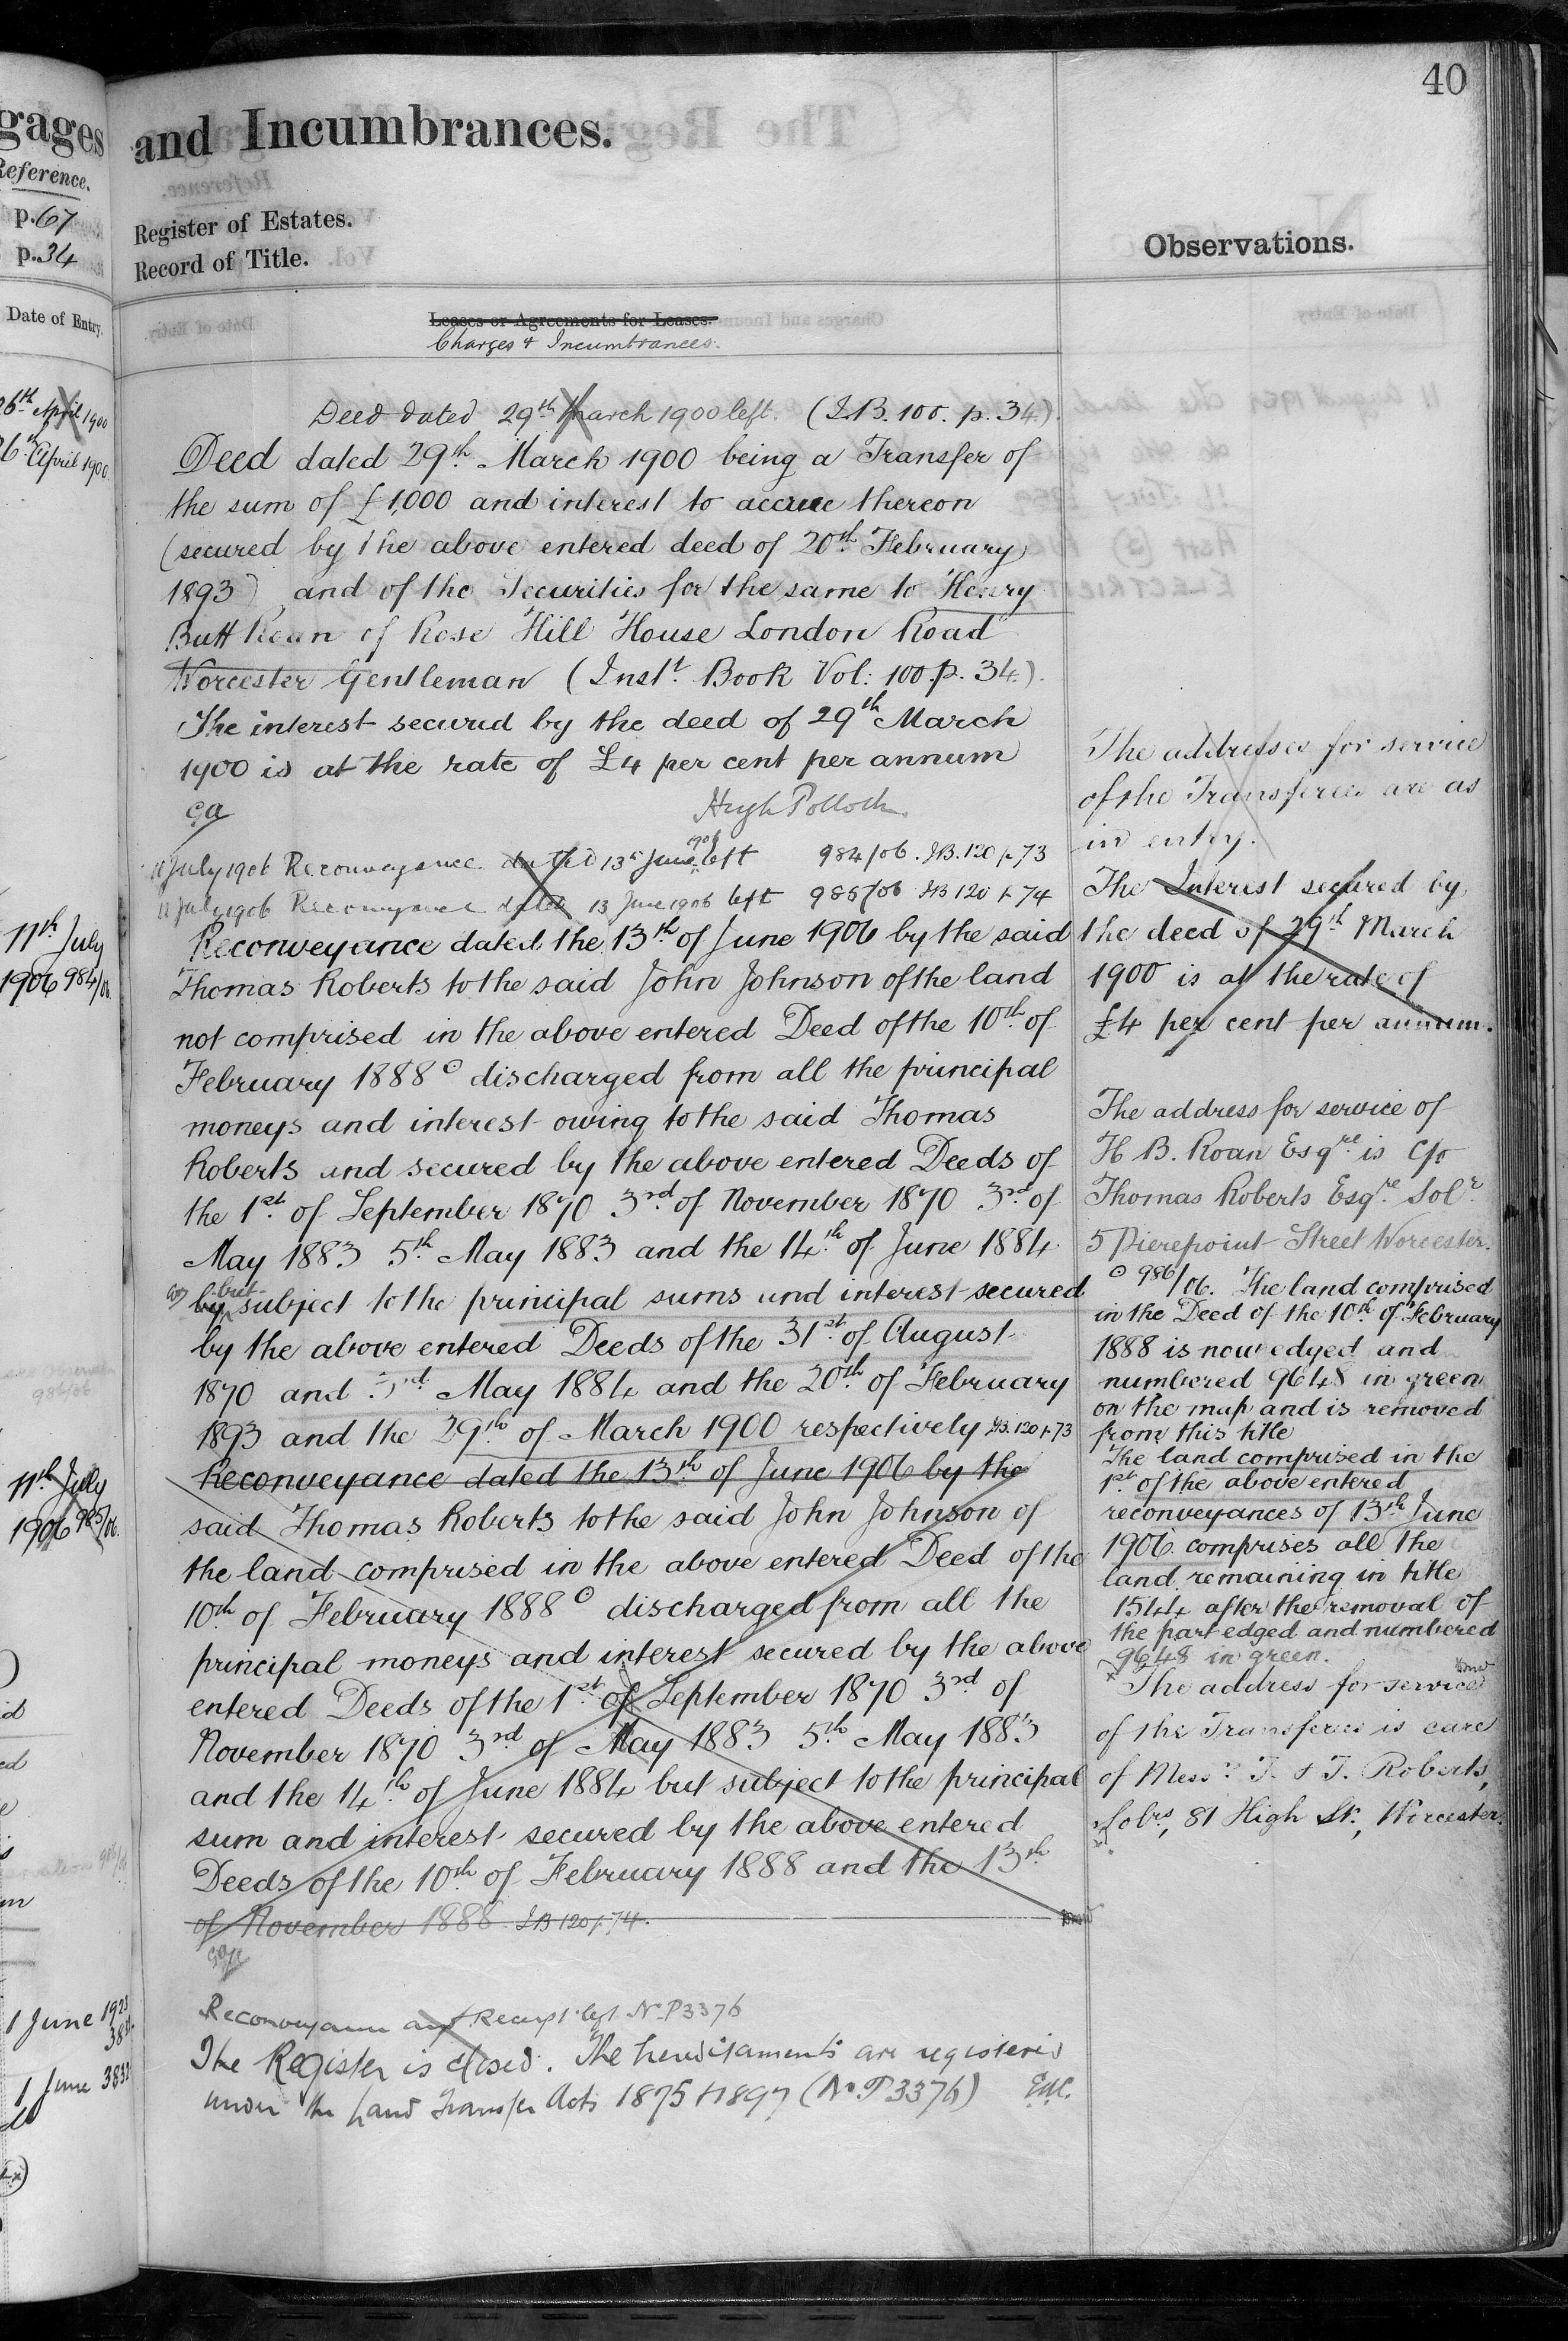 40
gages
Reference.
p. 67
p. 34
Date of Entry.
26th April 1900
26th April 1900
11th July
1906 984/06
11th July
1906 985/06.
1 June 1923
1 June 3832
and Incumbrances.
Register of Estates.
Record of Title.
Leases or Agreements for Leases.
Charges & Incumbrances.
Deed dated 29th March 1900 left. (I.B. 100. p. 34.)
Deed dated 29th March 1900 being a Transfer of
the sum of £1,000 and interest to accrue thereon
(secured by the above entered deed of 20th February
1893) and of the Securities for the same to Henry
Butt Roan of Rose Hill House London Road
Worcester Gentleman (Inst. Book Vol: 100. p. 34.).
The interest secured by the deed of 29th March
1900 is at the rate of £4 per cent per annum
Hugh Pollock
11 July 1906 Reconveyance dated 13th June 1906 left 984/06. I.B. 120 p 73
11 July 1906 Reconveyance dated 13 June 1906 left 985/06 I.B 120 p 74
Reconveyance dated the 13th of June 1906 by the said
Thomas Roberts to the said John Johnson of the land
not comprised in the above entered Deed of the 10th of
February 1888 ⊙ discharged from all the principal
moneys and interest owing to the said Thomas
Roberts and secured by the above entered Deeds of
the 1st of September 1870 3rd of November 1870 3rd of
May 1883 5th May 1883 and the 14th of June 1884
by but subject to the principal sums and interest secured
by the above entered Deeds of the 31st of August
1870 and 3rd May 1884 and the 20th of February
1893 and the 29th of March 1900 respectively I.B. 120 p 73
Reconveyance dated the 13th of June 1906 by the
said Thomas Roberts to the said John Johnson of
the land comprised in the above entered Deed of the
10th of February 1888 ⊙ discharged from all the
principal moneys and interest secured by the above
entered Deeds of the 1st of September 1870 3rd of
November 1870 3rd of May 1883 5th May 1883
and the 14th of June 1884 but subject to the principal
sum and interest secured by the above entered
Deeds of the 10th of February 1888 and the 13th
of November 1888 I.B 120 p. 74.
Reconveyance and Receipt left No P3376
The Register is closed. The hereditaments are registered
under the Land Transfer Acts 1875 & 1897 (No P3376)
Observations.
The addresses for service
of the Transferees are as
in entry.
The Interest secured by
the deed of 29th March
1900 is at the rate of
£4 per cent per annum.
The address for service of
H B. Roan Esqre is C/o
Thomas Roberts Esqre Solr
5 Pierepoint Street Worcester.
⊙ 986/06. The land comprised
in the Deed of the 10th of February
1888 is now edged and
numbered 9648 in green
on the map and is removed
from this title
The land comprised in the
1st of the above entered
reconveyances of 13th June
1906 comprises all the
land remaining in title
1544 after the removal of
the part edged and numbered
9648 in green.
x The address for service
of the Transferees is care
of Messrs T. & T. Roberts,
Solrs, 81 High St., Worcester.